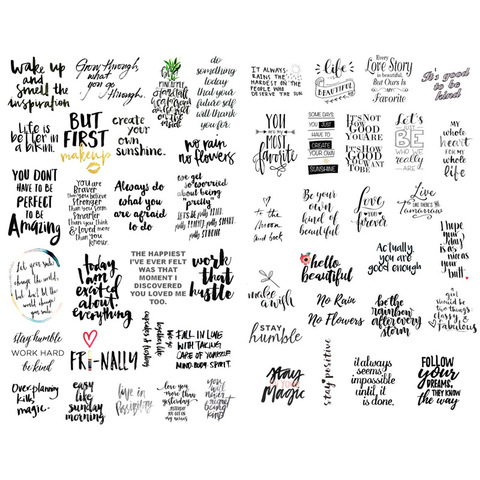 wake up
and
smell the
inspiration
Grow through,
what
you go
through.
do
something
today
that your
future self
will thank
you for
IT ALWAYS
RAINS THE
HARDEST ON THE
PEOPLE WHO
DESERVE THE SUN
life
is
BEAUTIFUL
Every
Love Story
is beautiful,
But Ours is
Favorite
It's good
to be
kind
Life is
better in
a bikini.
BUT
FIRST
makeup
create
your
own
sunshine.
no rain
no flowers
YOU
ARE MY
MOST
favorite
SOME DAYS
YOU JUST
HAVE TO
CREATE
YOUR OWN
SUNSHINE
IT'S NOT
HOW GOOD
YOU ARE
IT'S HOW
GOOD YOU
WANT
TO BE
Let's
BE
WHO
WE
really
ARE
MY
whole
heart
FOR MY
whole
LIFE
YOU DON'T
HAVE TO BE
PERFECT
TO BE
Amazing
YOU are
Braver
than you believe
Stronger
than you seem
Smarter
than you think
& Loved
more than
you know.
Always do
what you
are afraid
to do
we get
so worried
about being
"pretty"
LET'S BE pretty KIND.
LET'S BE pretty FUNNY.
LET'S BE pretty SMART.
LET'S BE pretty STRONG.
to the
Moon
and back
Be your
own
kind of
beautiful
Love
you
forever
Live
like there's no
Tomorrow
Let your smile
change the world,
but don't let the
world change
your smile
today
I am
excited
about
everything
THE HAPPIEST
I'VE EVER FELT
WAS THAT
MOMENT I
DISCOVERED
YOU LOVED ME
TOO.
work
that
hustle
make
a wish
hello
beautiful
Actually,
you are
good enough
I hope
your
day is
as nice
as your
butt
stay humble
WORK HARD
be kind
FRI-NALLY
cupcakes & lipstick
FALL IN LOVE
WITH TAKING
CARE OF YOURSELF
MIND. BODY. SPIRIT.
STAY
humble
No Rain
No Flowers
be the
rainbow
after every
storm
a girl
should be
two things
classy
&
fabulous
Over-planning
kills
magic.
easy
like
sunday
morning
love you
more than
yesterday
stay
Magic
stay positive
it always
seems
impossible
until it
is done.
FOLLOW
your
DREAMS,
THEY KNOW
the WAY